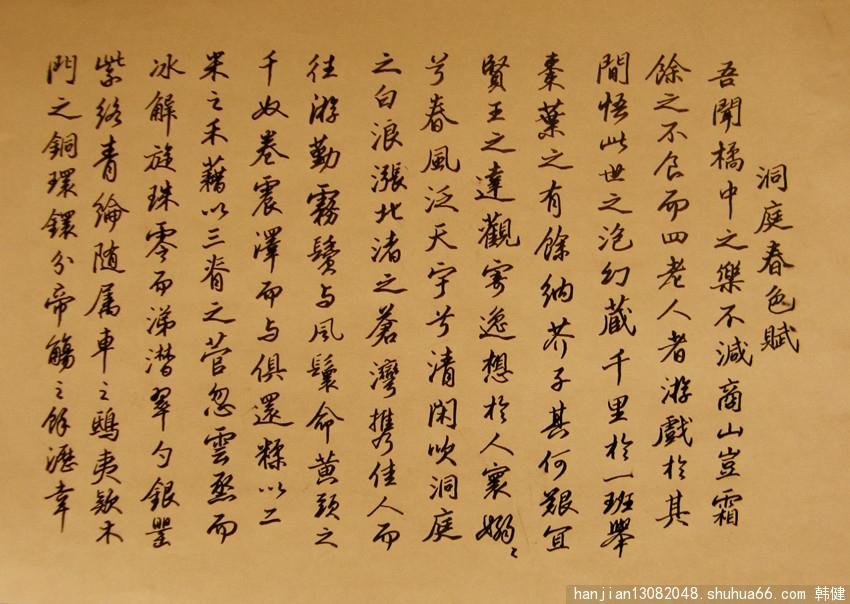 洞庭春色賦
吾聞橘中之樂不減商山豈霜
餘之不食而四老人者游戲於其
間悟此世之泡幻藏千里於一班舉
棗葉之有餘納芥子其何艱宜
賢王之達觀寄逸想於人寰嫋〻
兮春風泛天宇兮清閑吹洞庭
之白浪漲北渚之蒼灣攜佳人而
往游勤霧鬢与風鬟命黃頭之
千奴卷震澤而与俱還糅以二
米之禾藉以三脊之菅忽雲烝而
冰解旋珠零而涕潸翠勺銀罌
紫絡青綸随属車之鴟夷款木
門之銅環鐶分帝觴之餘瀝幸
hanjian13082048.shuhua66.com 韩健